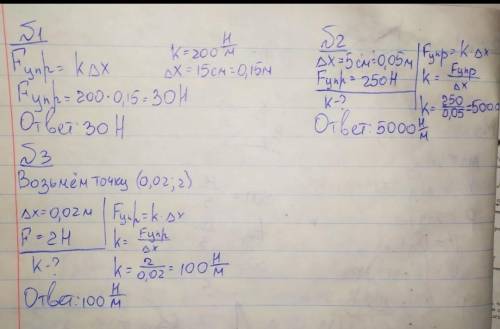 №1
Fупр = kΔx
k = 200 Н/м
Δx = 15 см = 0,15 м
Fупр = 200 · 0,15 = 30 Н
Ответ: 30 Н
№2
Δx = 5 см = 0,05 м
Fупр = 250 Н
k - ?
Fупр = k · Δx
k = Fупр/Δx
k = 250/0,05 = 5000
Ответ: 5000 Н/м
№3
Возьмём точку (0,02; 2)
Δx = 0,02 м
F = 2 Н
k - ?
Fупр = k · Δx
k = Fупр/Δx
k = 2/0,02 = 100 Н/м
Ответ: 100 Н/м